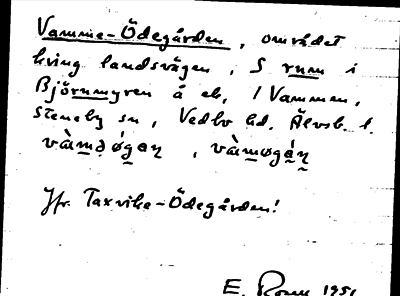 Vamme-Ödegården, området
kring landsvägen, S rum i
Björnmyren å ek, I Vammen,
Steneby sn, Vedbo hd. Älvsb. l.
Jfr. Taxvike-Ödegården!
E. 1951